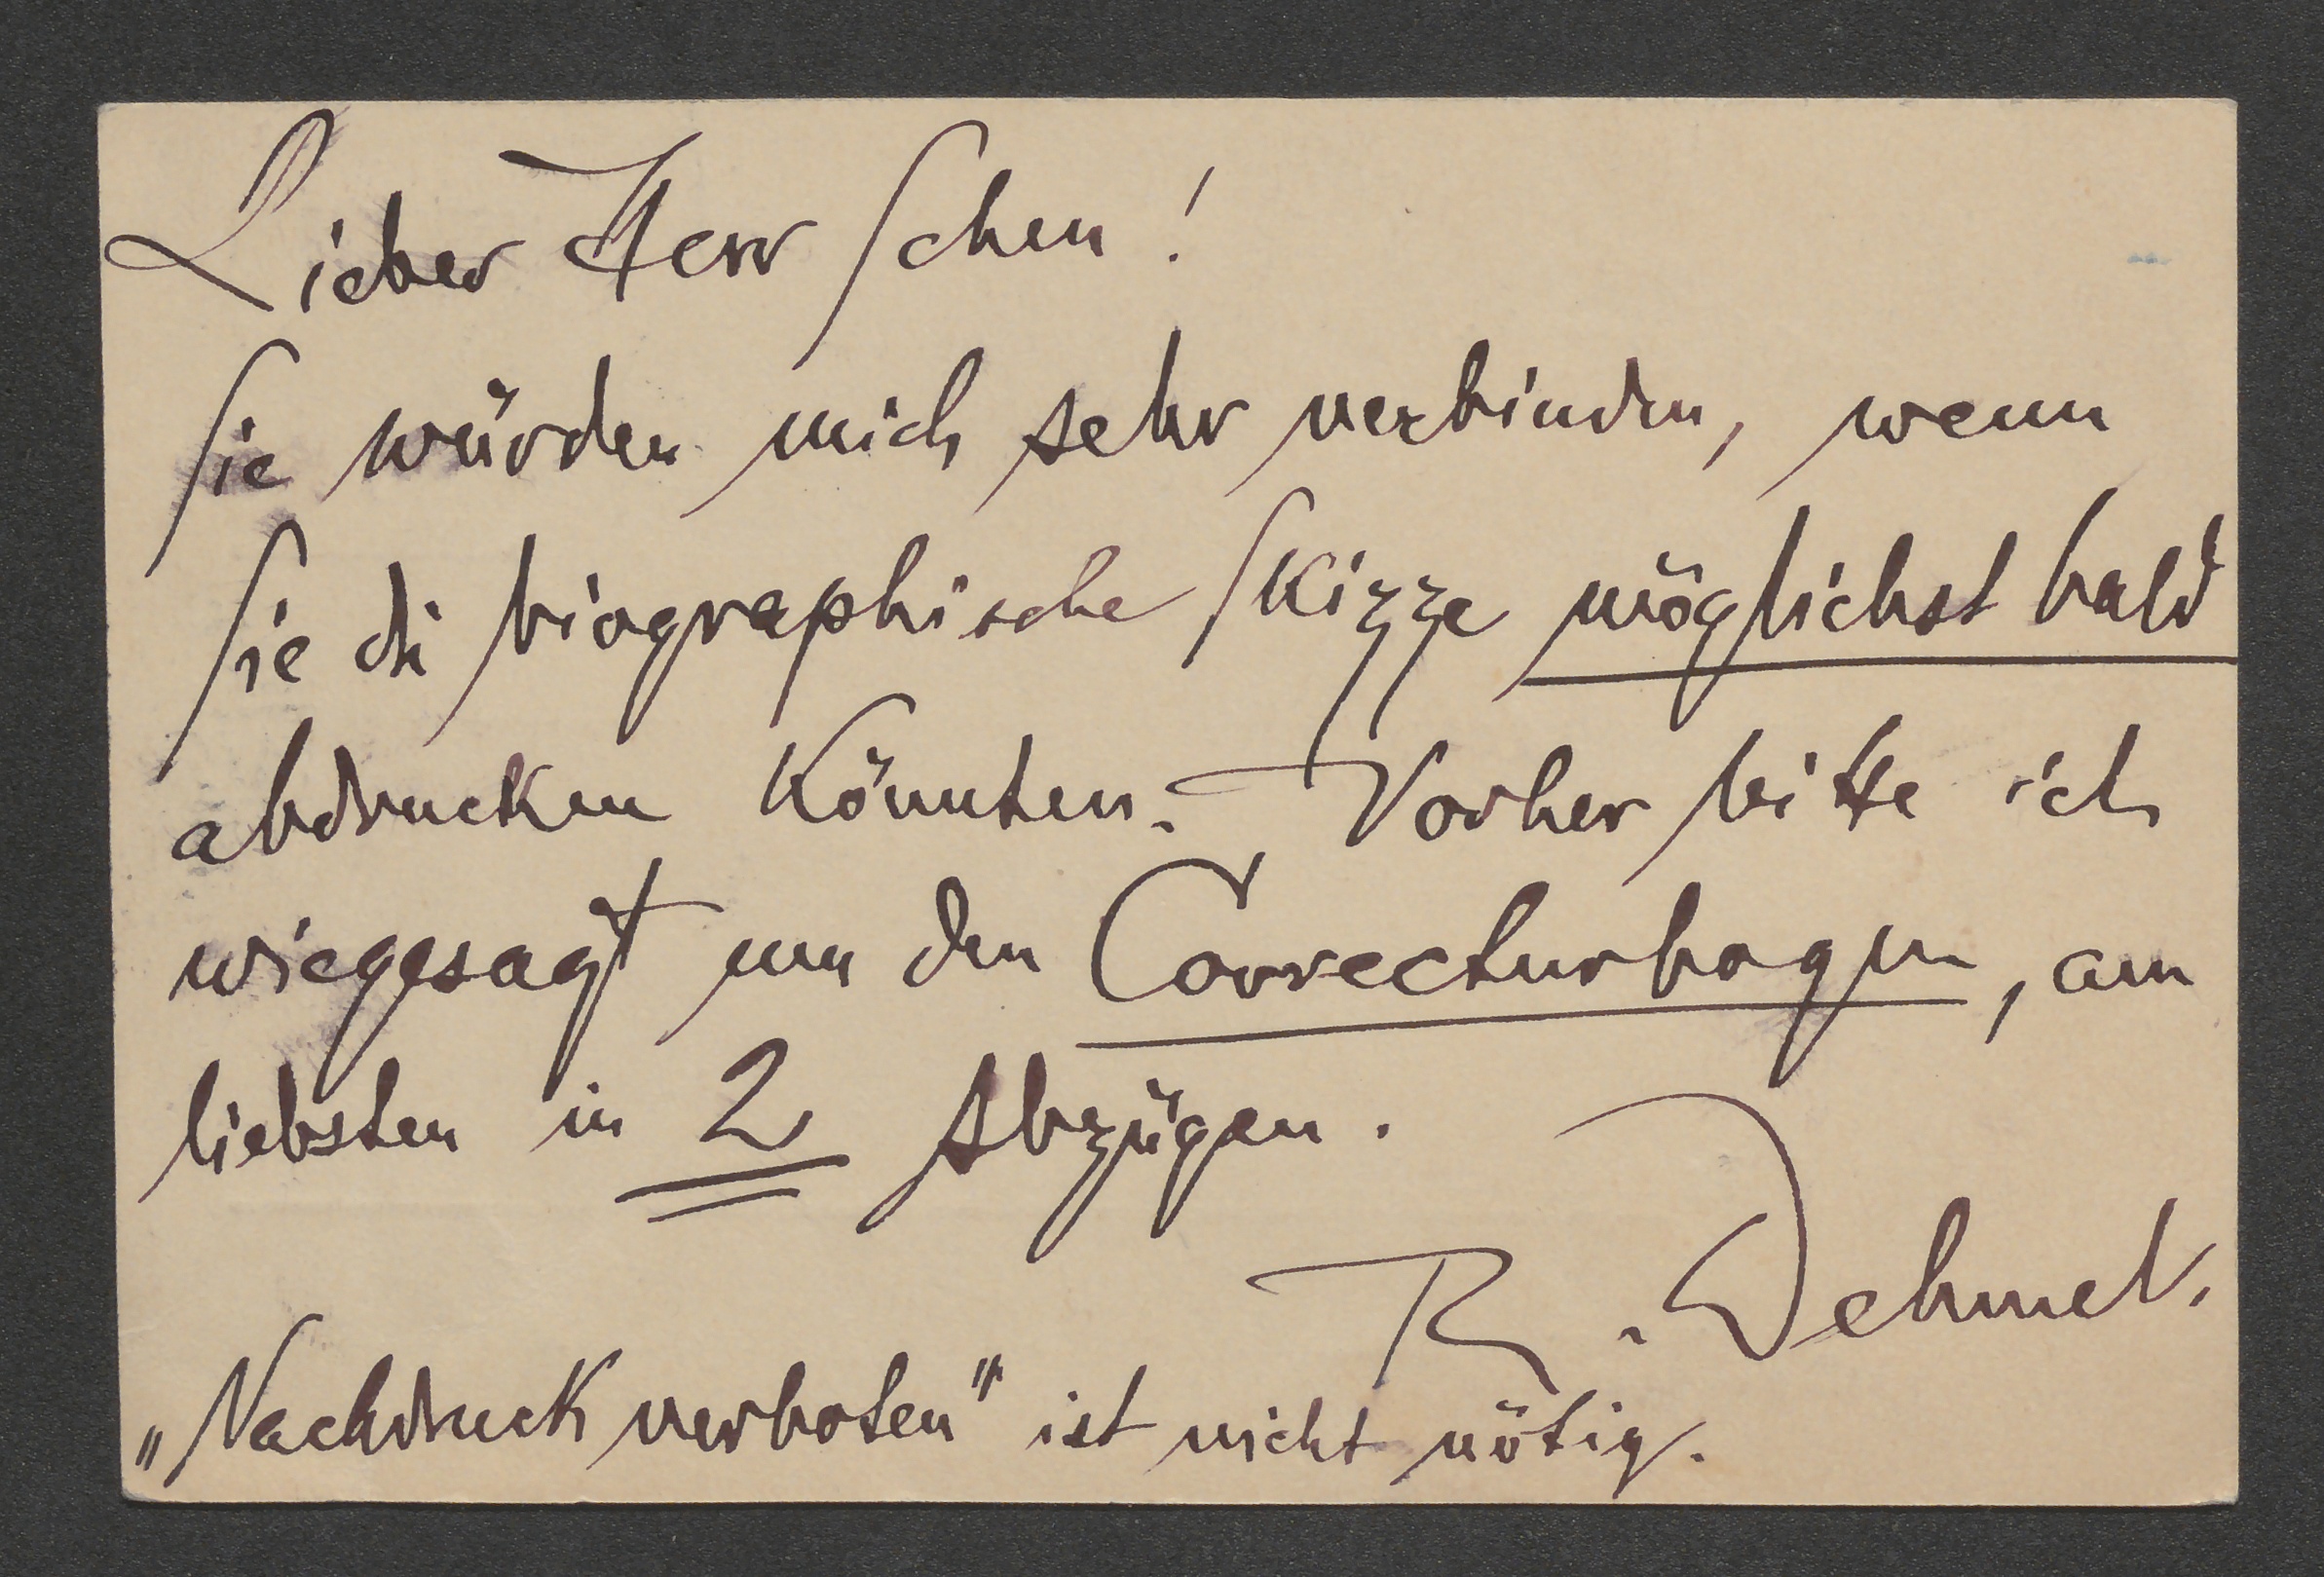 Lieber Herr Scheu!
Sie würden mich sehr verbinden, wenn
Sie die biographische Skizze möglichst bald
abdrucken könnten. Vorher bitte ich
wiegesagt um den Correcturbogen, am
liebsten in 2 Abzügen.
R. Dehmel.
„Nachdruck verboten" ist nicht nötig.